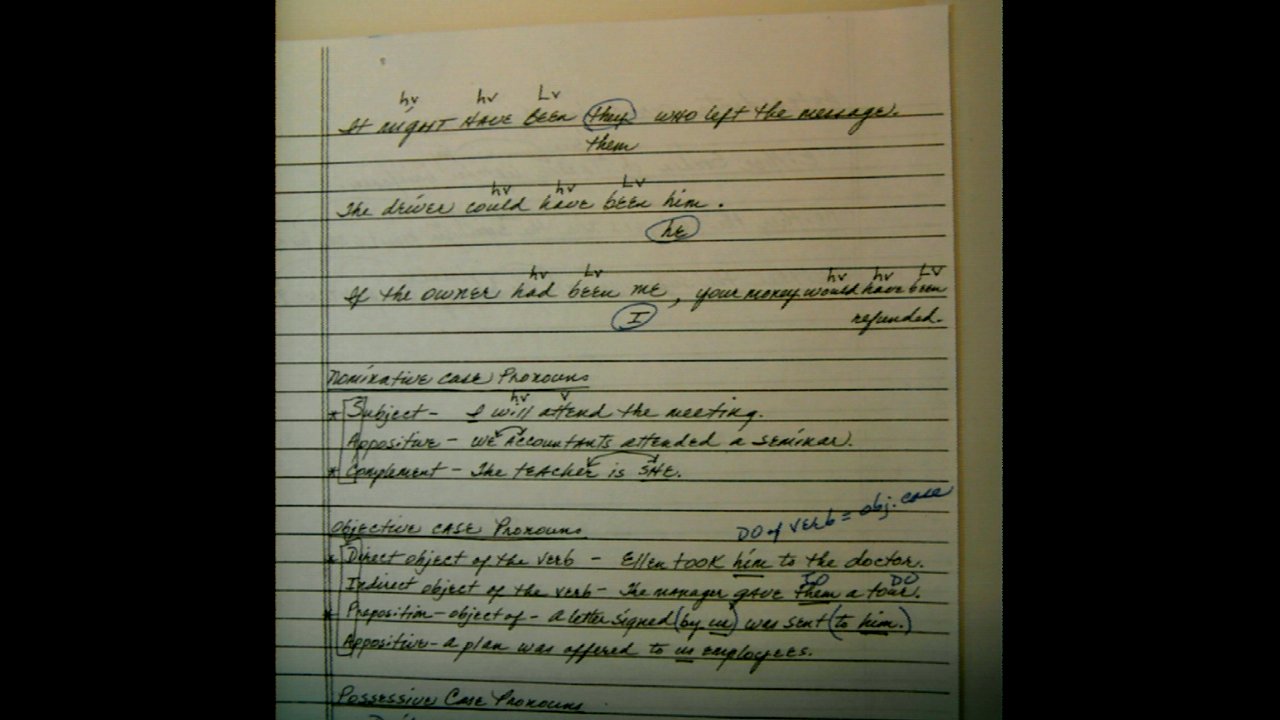 hv hv Lv
It might HAVE BEEN they who left the message.
them
hv hv Lv
The driver could have been him.
he
hv Lv hv hv LV
If the owner had been me, your money would have been
I refunded.
Nominative Case Pronouns
hv v
* Subject - I will attend the meeting.
Appositive - we Accountants attended a seminar.
* Complement - The teacher is SHE.
DO of verb = obj. case
Objective Case Pronouns
* Direct object of the verb - Ellen took him to the doctor.
IO DO
Indirect object of the verb - The manager gave them a tour.
* Preposition - object of - A letter signed (by us) was sent (to him.)
Appositive - a plan was offered to us employees.
Possessive Case Pronouns